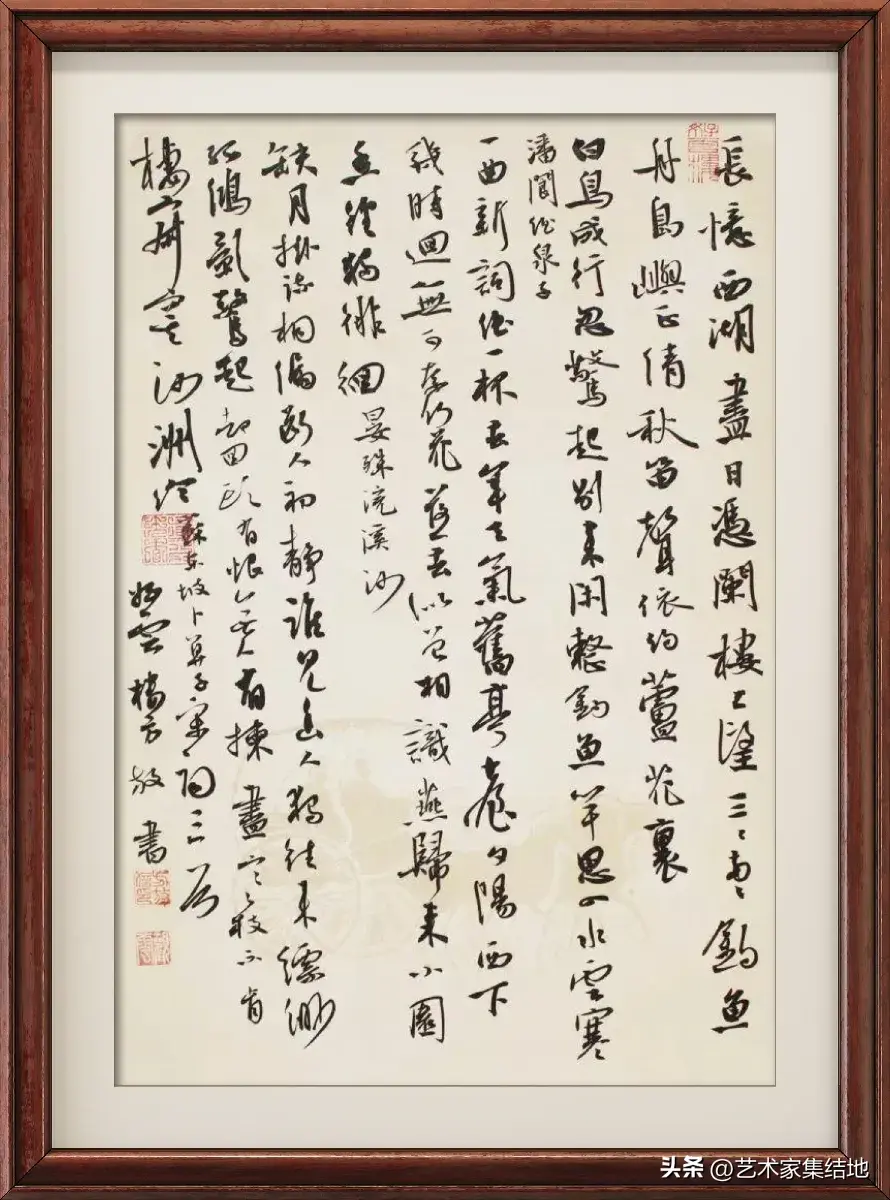 長憶西湖盡日憑闌樓上望三〻兩〻釣魚
舟島嶼正清秋笛聲依約蘆花裏
白鳥成行忽驚起別來閑整釣魚竿思入水雲寒
潘閬酒泉子
一曲新詞酒一杯去年天氣舊亭臺夕陽西下
幾時迴無可奈何花落去似曾相識燕歸來小園
香徑獨徘徊
晏殊浣溪沙
缺月掛疏桐漏斷人初靜誰見幽人獨往來縹緲
孤鴻影驚起却回頭有恨無人省揀盡寒枝不肯
棲寂寞沙洲冷
蘇東坡卜算子宋詞三首
書
头条 @艺术家集结地